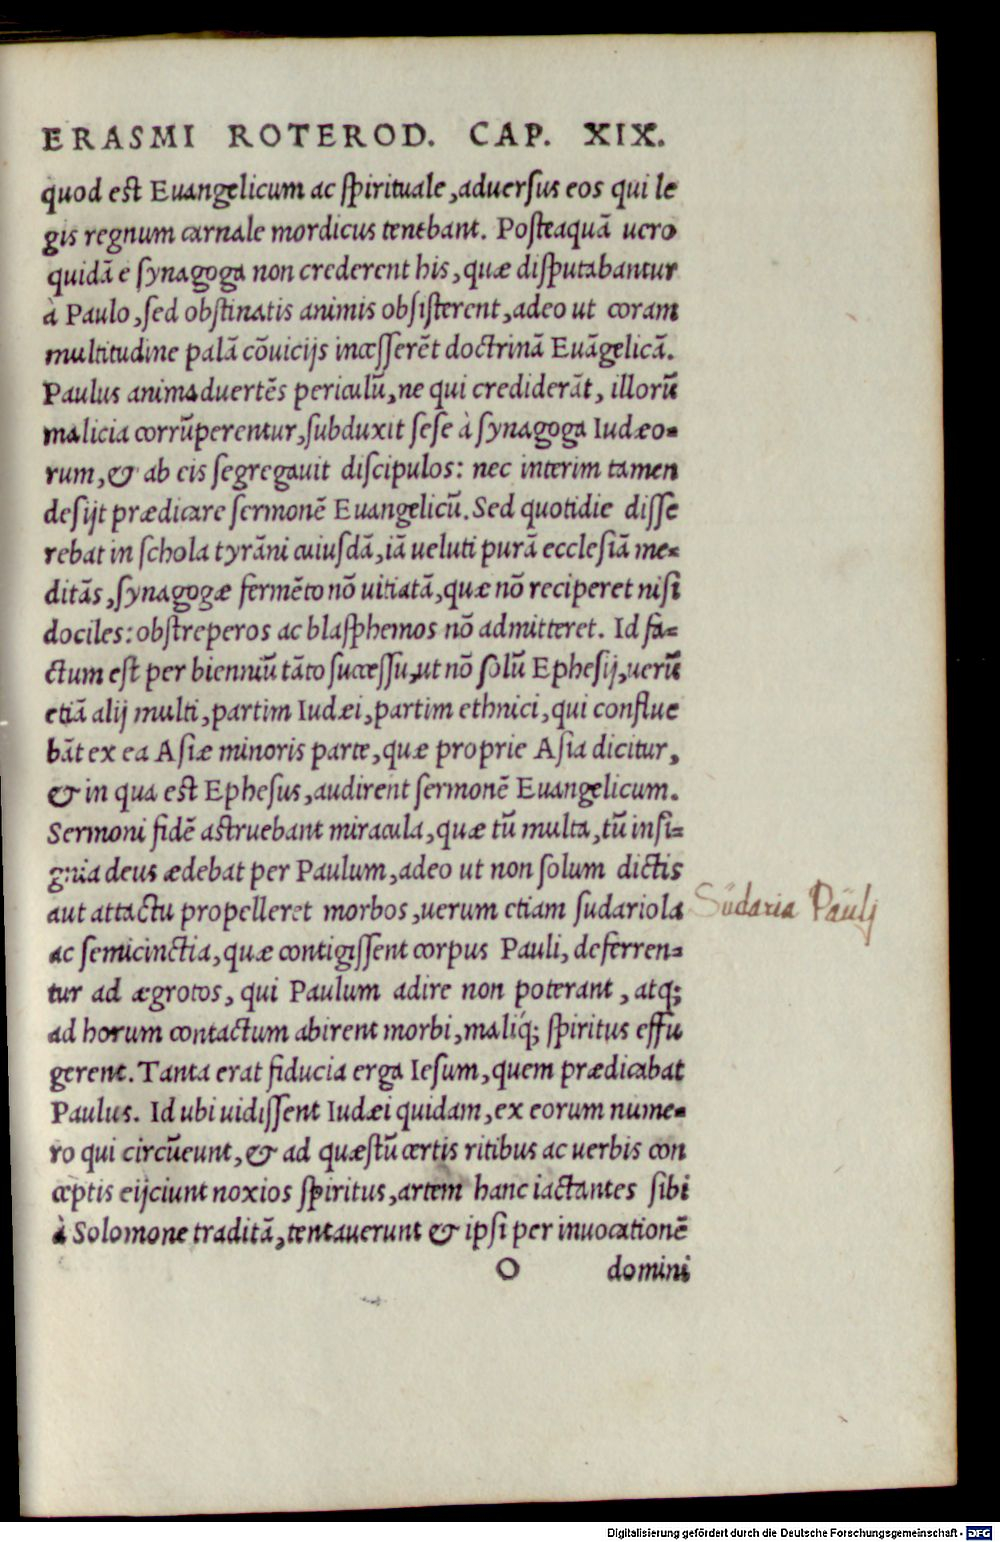 ERASMI ROTEROD. CAP. XIX.
quod est Euangelicum ac spirituale, aduersus eos qui le
gis regnum carnale mordicus tenebant. Posteaquā uero
quidā e synagoga non crederent his, quæ disputabantur
à Paulo, sed obstinatis animis obsisterent, adeo ut coram
multitudine palā cōuicijs incesserēt doctrinā Euāgelicā.
Paulus animaduertēs periculū, ne qui crediderāt, illorū
malicia corrūperentur, subduxit sese à synagoga Iudæo-
rum, & ab eis segregauit discipulos: nec interim tamen
desijt prædicare sermonē Euangelicū. Sed quotidie disse
rebat in schola tyrāni cuiusdā, iā ueluti purā ecclesiā me-
ditās, synagogæ fermēto nō uitiatā, quæ nō reciperet nisi
dociles: obstreperos ac blasphemos nō admitteret. Id fa-
ctum est per bienniū tāto successu, ut nō solū Ephesij, uerū
etiā alij multi, partim Iudæi, partim ethnici, qui conflue
bāt ex ea Asiæ minoris parte, quæ proprie Asia dicitur,
& in qua est Ephesus, audirent sermonē Euangelicum.
Sermoni fidē astruebant miracula, quæ tū multa, tū insi-
gnia deus ædebat per Paulum, adeo ut non solum dictis
aut attactu propelleret morbos, uerum etiam sudariola
Südaria Paülj
ac semicinctia, quæ contigissent corpus Pauli, deferren-
tur ad ægrotos, qui Paulum adire non poterant, atq;
ad horum contactum abirent morbi, maliq́; spiritus effu
gerent. Tanta erat fiducia erga Iesum, quem prædicabat
Paulus. Id ubi uidissent Iudæi quidam, ex eorum nume-
ro qui circūeunt, & ad quæstū certis ritibus ac uerbis con
ceptis eijciunt noxios spiritus, artem hanc iactantes sibi
à Solomone traditā, tentauerunt & ipsi per inuocationē
O domini
Digitalisierung gefördert durch die Deutsche Forschungsgemeinschaft - DFG